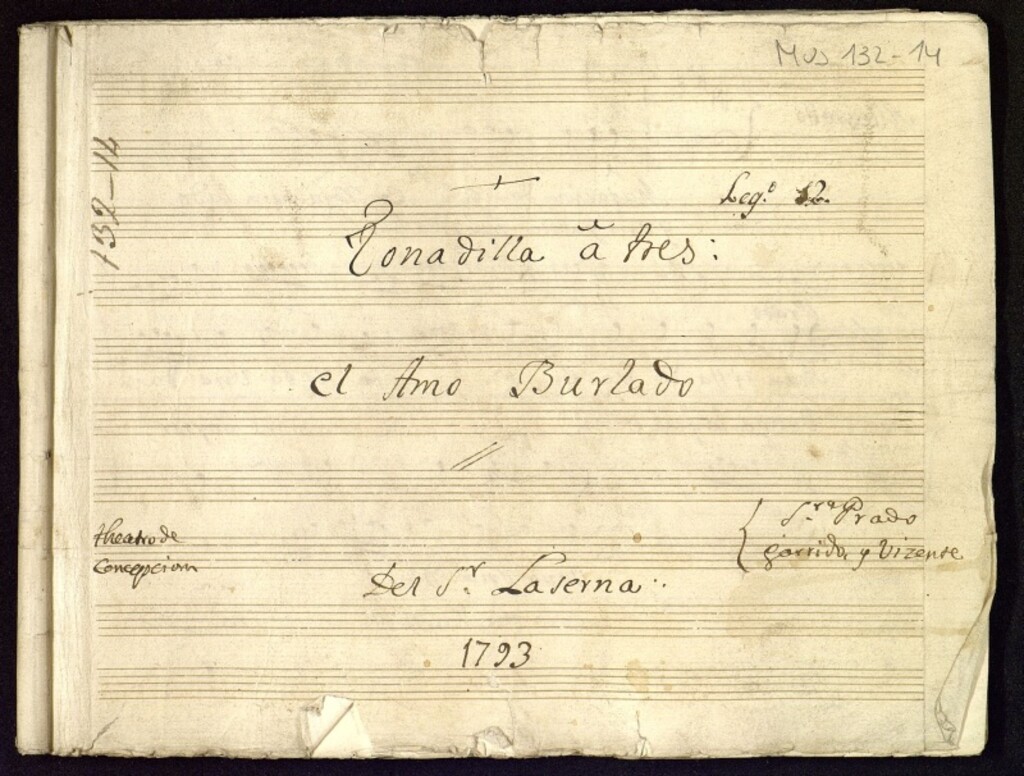 Mus 132-14
132-14
Leg.º 12.
Tonadilla â tres:
el Amo Burlado
theatro de
Concepcion
S.ra Prado
Garrido, y Vizente
Del S.r Laserna.
1793